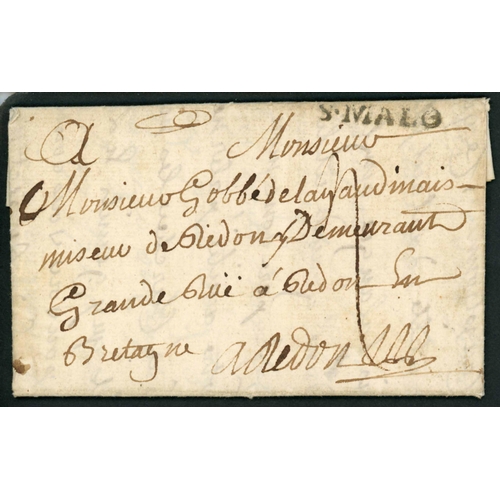 S·MALO
A Monsieur
Monsieur Gobbé de la Gaudinais
miseur de Redon y Demeurant
Grande Ruë à Redon En
Bretagne a Redon